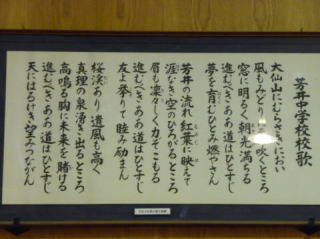 芳井中学校校歌
大仙山にむらさきにおい
風もみどりに 吹くところ
窓に明るく 朝光満ちる
夢を育むひとみ燃やさん
芳井の流れ 紅葉に映えて
涯なき空のひろがるところ
眉も凛々しく 力ぞこもる
進むべきあの道はひとすじ
友よ挙りて 睦み励まん
桜渓あり 遺風も高く
真理の泉湧き出るところ
高鳴る胸に未来を賭ける
進むべきあの道はひとすじ
天にはるけき望みつながん